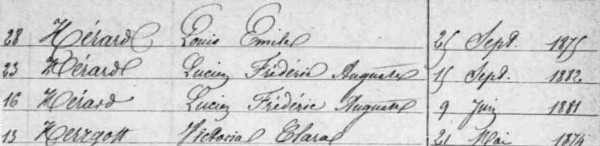 28 Hérard Louis Emile 25 Sept. 1875
23 Hérard Lucien Frédéric Auguste 15 Sept. 1882
16 Hérard Lucien Frédéric Auguste 9 Juin 1881
13 Herrgott Victoria Clara 21 Mai 1874